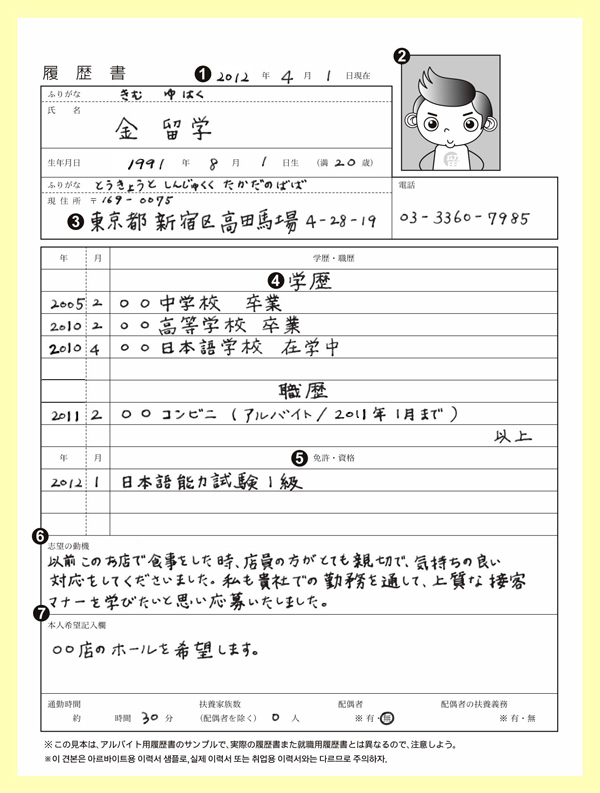 履歴書 ❶ 2012 年 4 月 1 日現在
❷
ふりがな きむ ゆはく
氏 名
金 留学
生年月日 1991 年 8 月 1 日生 (満 20 歳)
ふりがな とうきょうと しんじゅくく たかだのばば
電話
現住所 〒169-0075
❸ 東京都 新宿区 高田馬場 4-28-19
03-3360-7985
年 月 学歴・職歴
❹ 学歴
2005 2 ○○中学校 卒業
2010 2 ○○高等学校 卒業
2010 4 ○○日本語学校 在学中
職歴
2011 2 ○○コンビニ (アルバイト/2011年1月まで)
以上
年 月 ❺ 免許・資格
2012 1 日本語能力試験1級
❻
志望の動機
以前このお店で食事をした時、店員の方がとても親切で、気持ちの良い
対応をしてくださいました。私も貴社での勤務を通して、上質な接客
マナーを学びたいと思い応募いたしました。
❼
本人希望記入欄
○○店のホールを希望します。
通勤時間 扶養家族数 配偶者 配偶者の扶養義務
約 時間 30 分 (配偶者を除く) 0 人 ※有・無 ※有・無
※この見本は、アルバイト用履歴書のサンプルで、実際の履歴書また就職用履歴書とは異なるので、注意しよう。
※이 견본은 아르바이트용 이력서 샘플로,실제 이력서 또는 취업용 이력서와는 다르므로 주의하자.